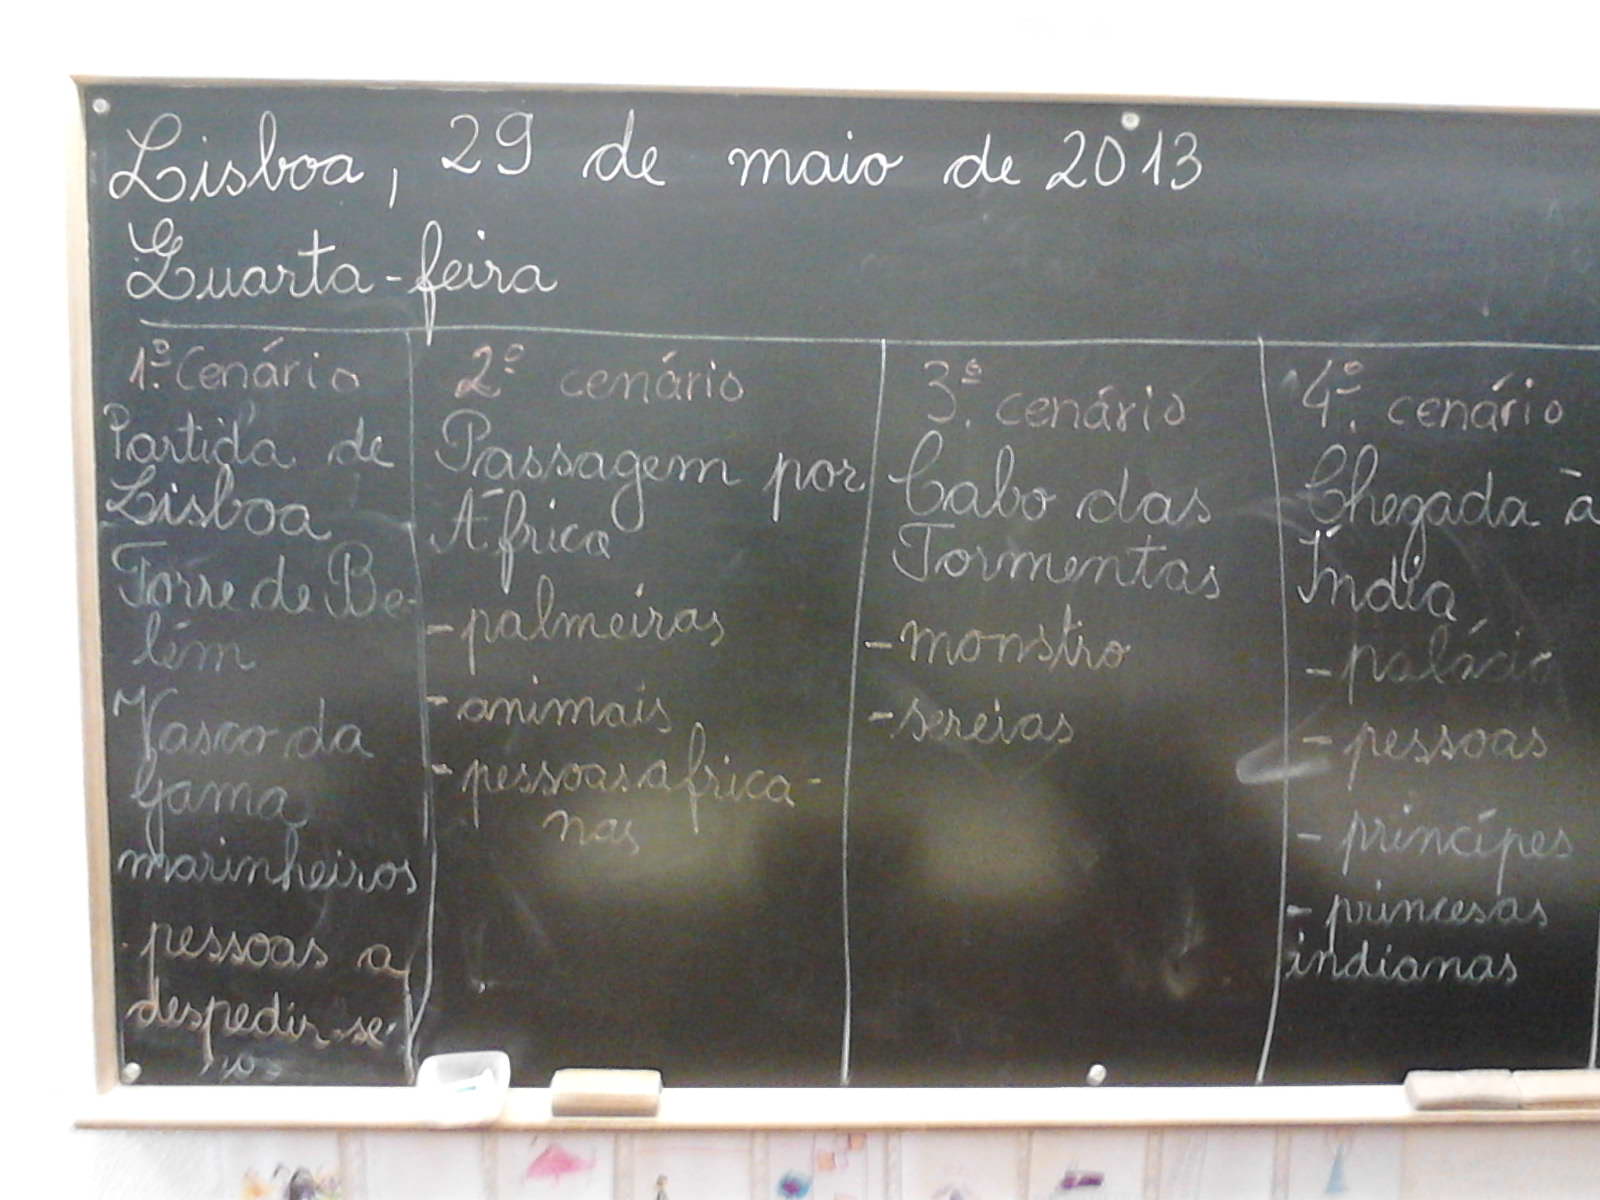 Lisboa, 29 de maio de 2013
Quarta-feira
1.º Cenário
Partida de
Lisboa
Torre de Be-
lém
Vasco da
Gama
marinheiros
pessoas a
despedir-se
2º cenário
Passagem por
África
- palmeiras
- animais
- pessoas africa-
nas
3.º cenário
Cabo das
Tormentas
- monstro
- sereias
4.º cenário
Chegada à
Índia
- palácio
- pessoas
- príncipes
- princesas
indianas